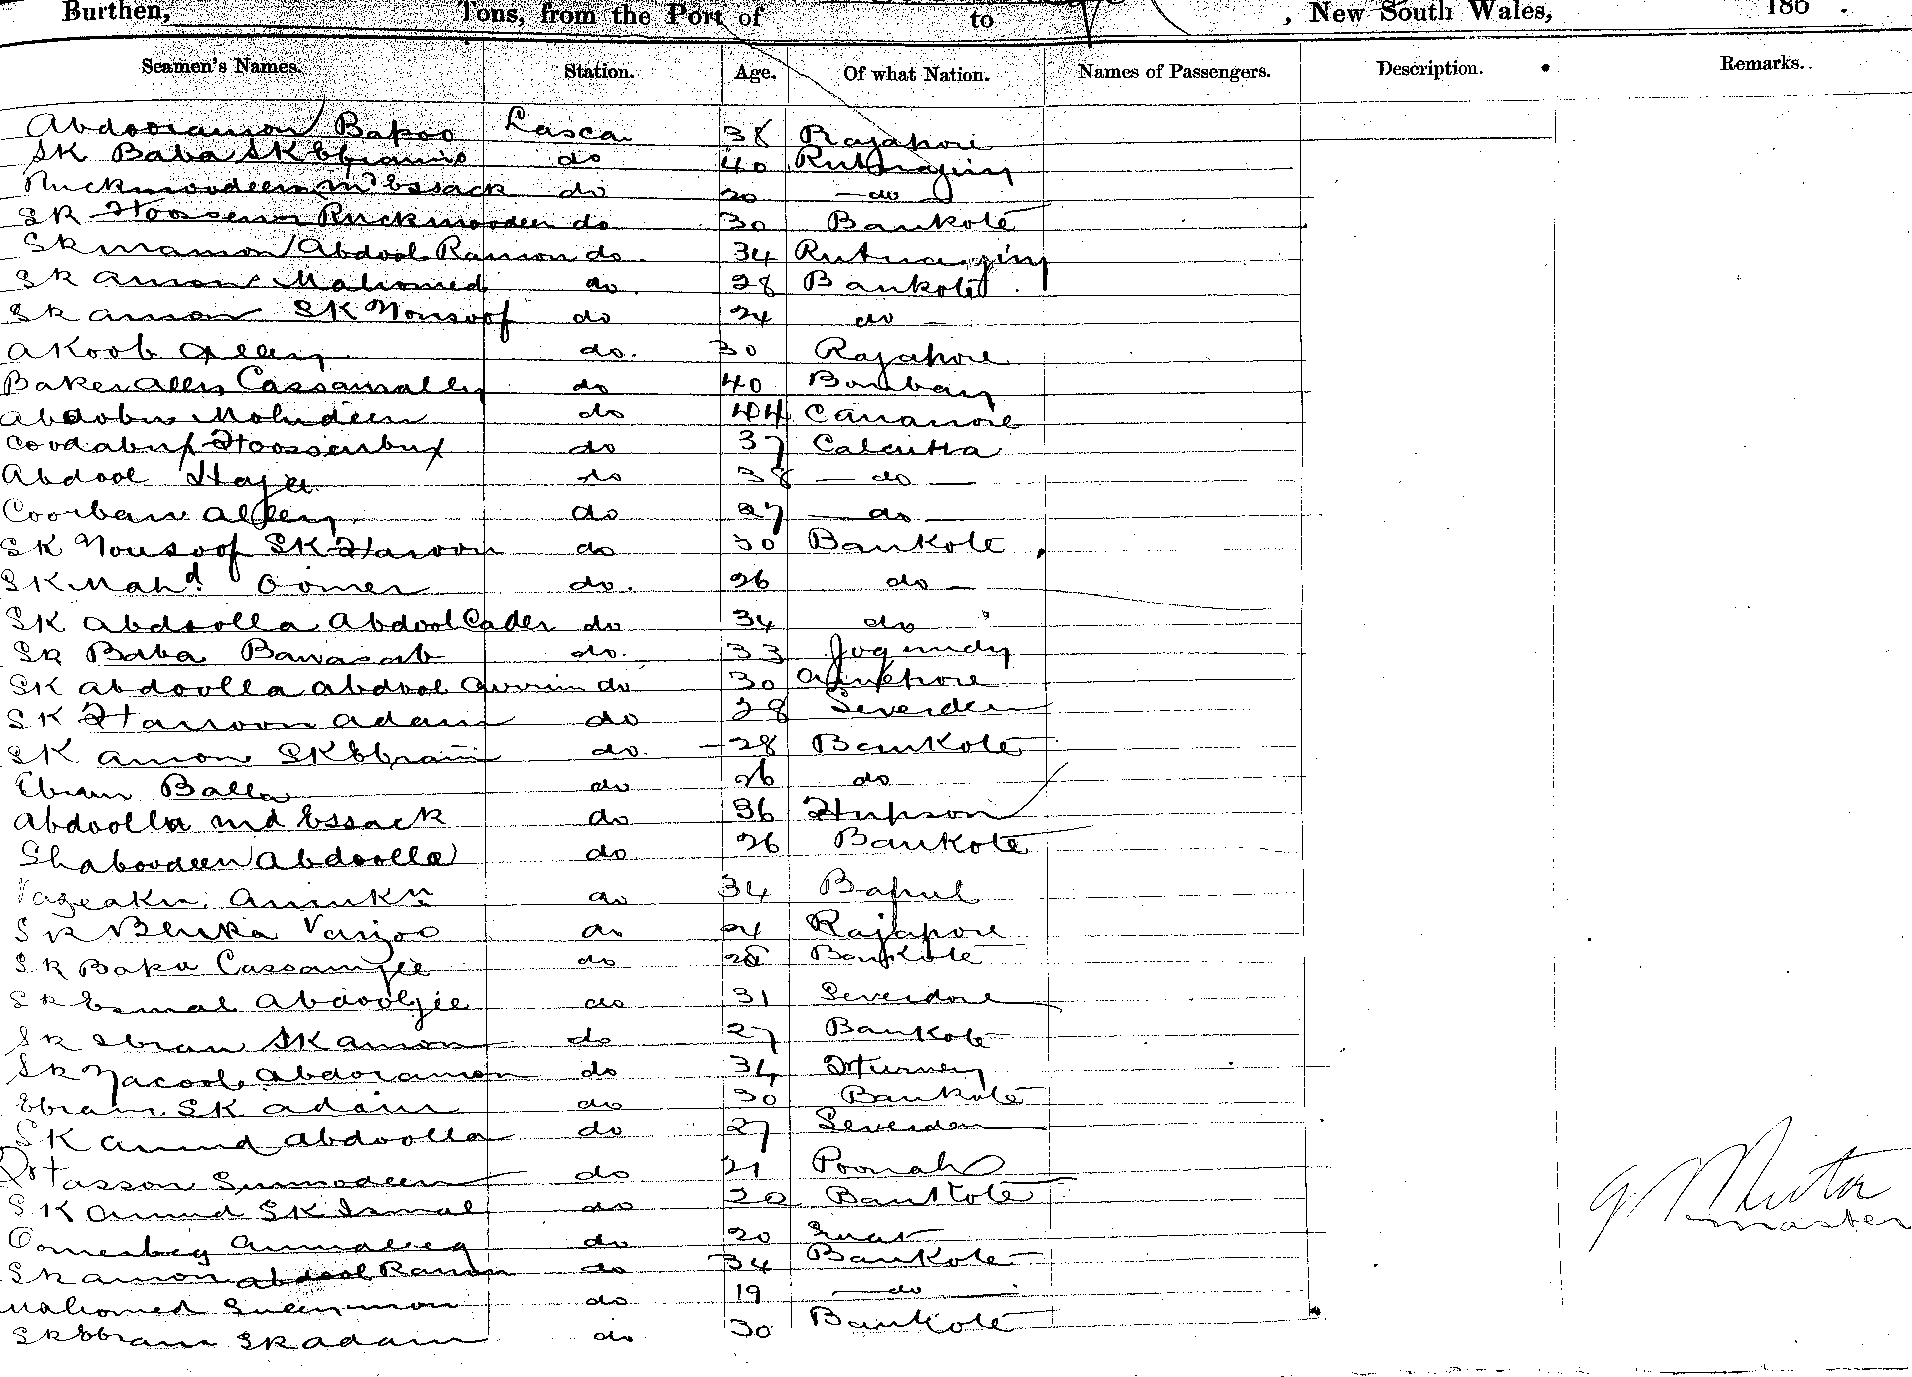 Burthen, Tons, from the Port of to , New South Wales, 186 .
Seamen's Names. Station. Age. Of what Nation. Names of Passengers. Description. Remarks.
Abdooramon Bakoo Lascar 38 Rajapore
SK Baba SK Ebramo do 40 Rutnagiry
Ruckmoodeen md Essack do 20 do
SK Hoosein Ruckmooden do 30 Bankote
SK mamon Abdool Ramon do 34 Rutnagiry
SK amon Mahomed do 28 Bankote
SK amon SK Yousoof do 24 do
Akoob Alley do. 30 Rajapore
Baker Alley Cassamalley do 40 Bombay
Mohudeen do 44 Cananore
Coodabux Hoossenbux do 37 Calcutta
Abdool do 38 do
Coorban Alley do 27 do
SK Yousoof SK Haroon do 30 Bankote
SK Mahd Oomer do. 26 do
SK Abdoolla Abdool Cader do 34 do
SK Baba Bawasab do. 33
SK Abdoolla Abdool do 30
SK Haroon Adam do 28 Severden
SK amon SK Ebram do. 28 Bankote
Ebram Balla do 26 do
Abdoolla md Essack do 36
Shaboodeen Abdoolla do 26 Bankote
do 34
SK do 24 Rajapore
SK Baka Cassamjee do 28 Bankote
SK Esmal Abdooljee do 31 Severdore
SK Ebram SK amon do 27 Bankote
SK Yacoob Abdoramon do 34
Ebram SK Adam do 30 Bankote
SK Amud Abdoolla do 27 Severden
Hasson do 21 Poonah
SK Amud SK Ismal do 20 Bankote
Oomerbeg do 20 Surat
SK amon Abdool Ramon do 34 Bankote
Mahomed Suleymon do 19 do
SK Ebram SK Adam do 30 Bankote
master